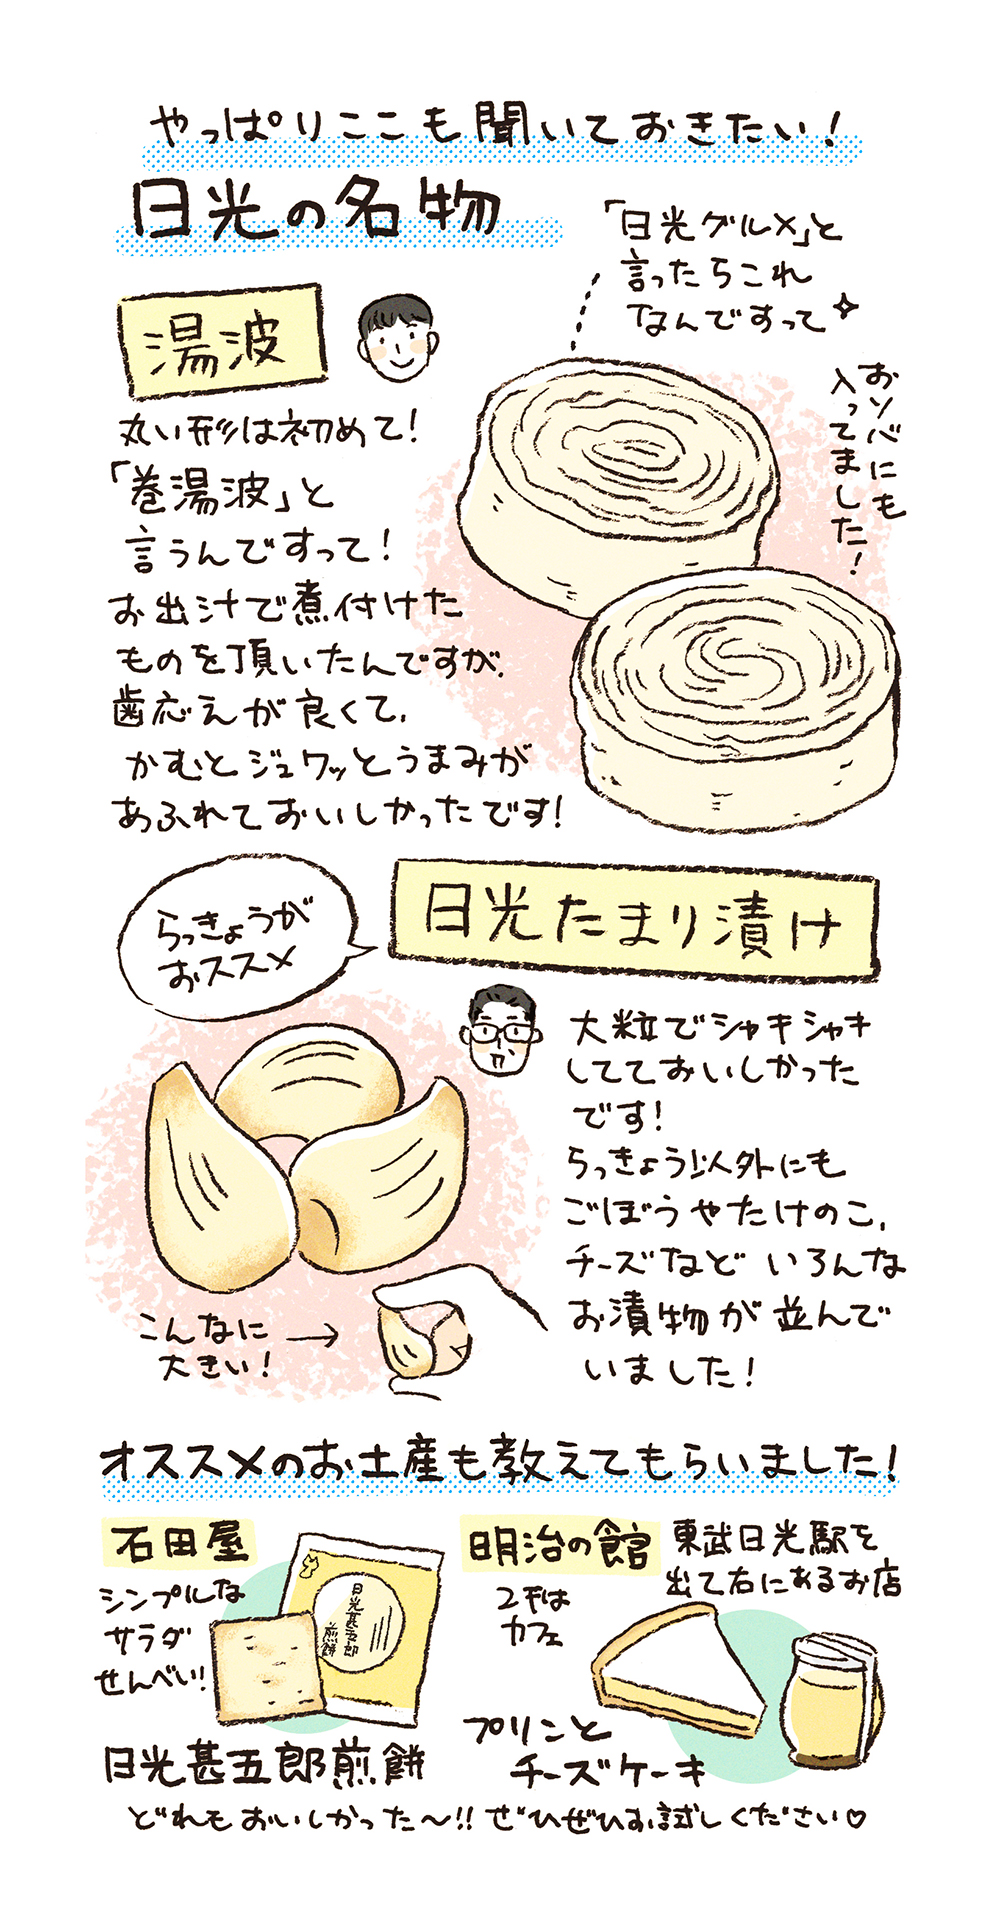 やっぱりここも聞いておきたい！
日光の名物
「日光グルメ」と
言ったらこれ
なんですって
湯波
おソバにも
入ってました！
丸い形は初めて！
「巻湯波」と
言うんですって！
お出汁で煮付けた
ものを頂いたんですが、
歯応えが良くて、
かむとジュワッとうまみが
あふれておいしかったです！
らっきょうが
おススメ
日光たまり漬け
大粒でシャキシャキ
してておいしかった
です！
らっきょう以外にも
ごぼうやたけのこ、
チーズなど いろんな
お漬物が並んで
いました！
こんなに
大きい！
→
オススメのお土産も教えてもらいました！
石田屋
シンプルな
サラダ
せんべい！！
日光甚五郎
煎餅
日光甚五郎煎餅
明治の館
東武日光駅を
出て右にあるお店
2Fは
カフェ
プリンと
チーズケーキ
どれもおいしかった〜!! ぜひぜひお試しください♡